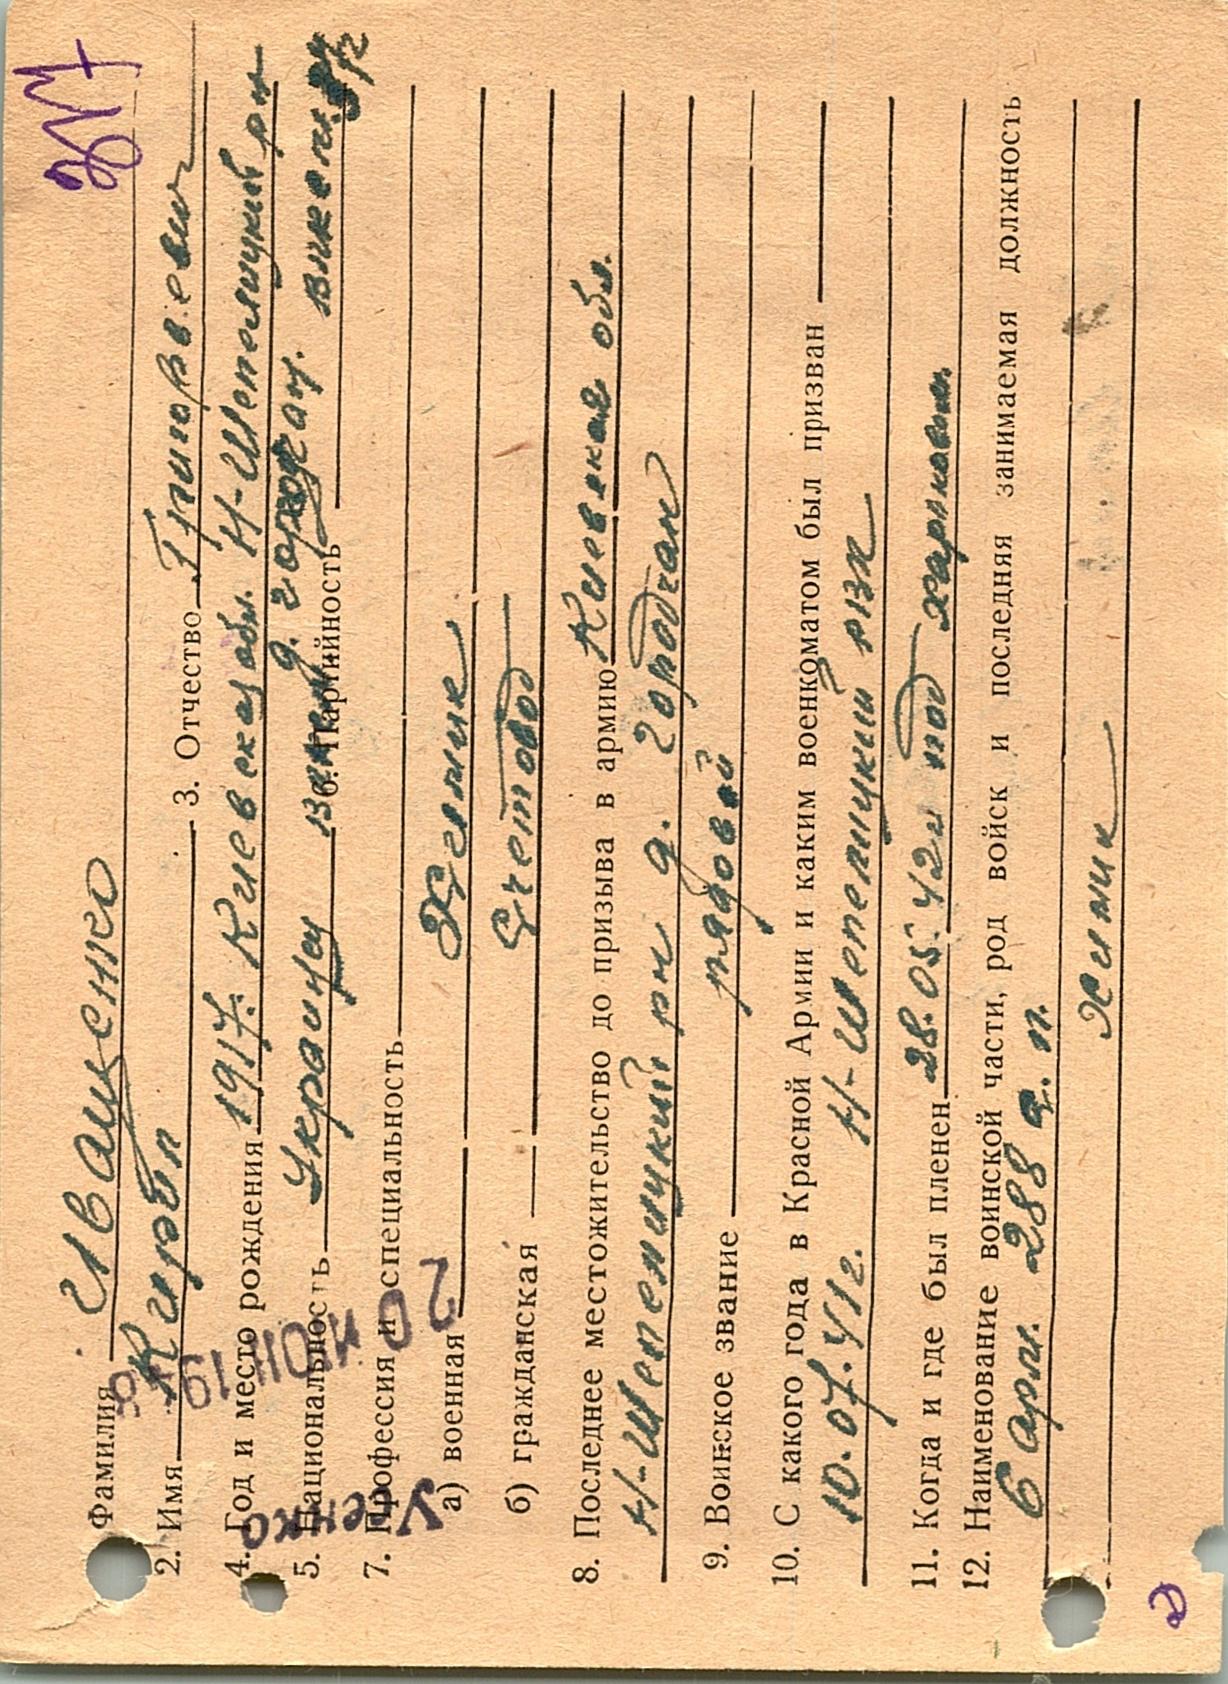 Фамилия Иващенко
2. Имя Кирил 3. Отчество Григорьевич
4. Год и место рождения 1917г. Киевская обл. Н-Шеполицкий рн
д. городчан.
5. Национальность Украинец 6. Партийность
7. Профессия и специальность
а) военная Химик
б) гражданская Счетовод
8. Последнее местожительство до призыва в армию Киевская обл.
Н-Шепелицкий рн д. городчан
9. Воинское звание рядовой
10. С какого года в Красной Армии и каким военкоматом был призван
10.07.41г. Н-Шепелицкий РВК
11. Когда и где был пленен 28.05.42г под харьковом
12. Наименование воинской части, род войск и последняя занимаемая должность
6 арм. 288 с. п.
химик
20 ИЮН 19
Усенко